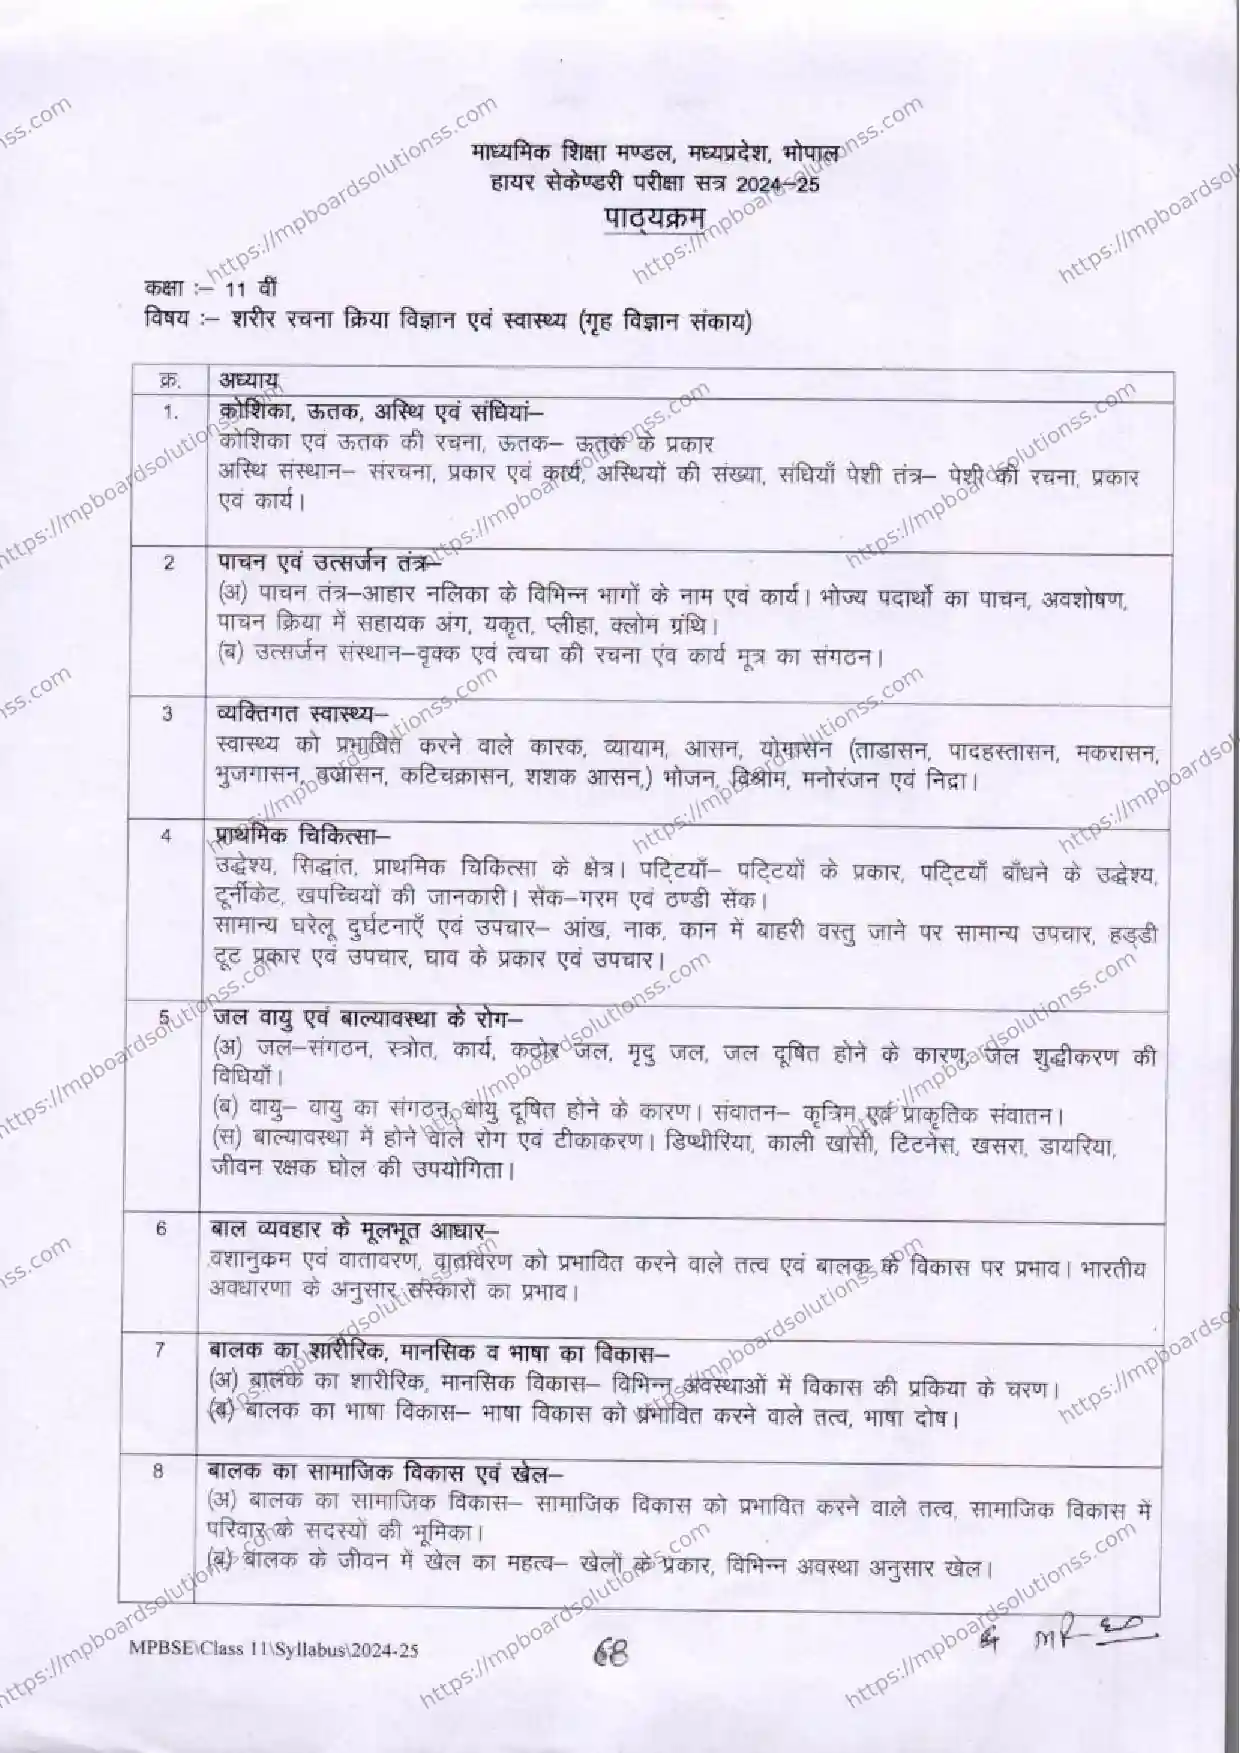 माध्यमिक शिक्षा मण्डल, मध्यप्रदेश, भोपाल
हायर सेकेण्डरी परीक्षा सत्र 2024–25
पाठ्यक्रम
कक्षा :– 11 वीं
विषय :– शरीर रचना क्रिया विज्ञान एवं स्वास्थ्य (गृह विज्ञान संकाय)
क्र. अध्याय
1. कोशिका, ऊतक, अस्थि एवं संधियां–
कोशिका एवं ऊतक की रचना, ऊतक– ऊतक के प्रकार
अस्थि संस्थान– संरचना, प्रकार एवं कार्य, अस्थियों की संख्या, संधियाँ पेशी तंत्र– पेशी की रचना, प्रकार
एवं कार्य।
2 पाचन एवं उत्सर्जन तंत्र–
(अ) पाचन तंत्र–आहार नलिका के विभिन्न भागों के नाम एवं कार्य। भोज्य पदार्थो का पाचन, अवशोषण,
पाचन क्रिया में सहायक अंग, यकृत, प्लीहा, क्लोम ग्रंथि।
(ब) उत्सर्जन संस्थान–वृक्क एवं त्वचा की रचना एंव कार्य मूत्र का संगठन।
3 व्यक्तिगत स्वास्थ्य–
स्वास्थ्य को प्रभावित करने वाले कारक, व्यायाम, आसन, योगासन (ताडासन, पादहस्तासन, मकरासन,
भुजगासन, बज्रासन, कटिचक्रासन, शशक आसन,) भोजन, विश्राम, मनोरंजन एवं निद्रा।
4 प्राथमिक चिकित्सा–
उद्धेश्य, सिद्धांत, प्राथमिक चिकित्सा के क्षेत्र। पट्टियाँ– पट्टियों के प्रकार, पट्टियाँ बाँधने के उद्धेश्य,
टूर्नीकेट, खपच्चियों की जानकारी। सेंक–गरम एवं ठण्डी सेंक।
सामान्य घरेलू दुर्घटनाएँ एवं उपचार– आंख, नाक, कान में बाहरी वस्तु जाने पर सामान्य उपचार, हड्डी
टूट प्रकार एवं उपचार, घाव के प्रकार एवं उपचार।
5 जल वायु एवं बाल्यावस्था के रोग–
(अ) जल–संगठन, स्त्रोत, कार्य, कठोर जल, मृदु जल, जल दूषित होने के कारण, जल शुद्धीकरण की
विधियाँ।
(ब) वायु– वायु का संगठन, वायु दूषित होने के कारण। संवातन– कृत्रिम एवं प्राकृतिक संवातन।
(स) बाल्यावस्था में होने वाले रोग एवं टीकाकरण। डिप्थीरिया, काली खांसी, टिटनेस, खसरा, डायरिया,
जीवन रक्षक घोल की उपयोगिता।
6 बाल व्यवहार के मूलभूत आधार–
वशानुकम एवं वातावरण, वातावरण को प्रभावित करने वाले तत्व एवं बालक के विकास पर प्रभाव। भारतीय
अवधारणा के अनुसार संस्कारों का प्रभाव।
7 बालक का शारीरिक, मानसिक व भाषा का विकास–
(अ) बालक का शारीरिक, मानसिक विकास– विभिन्न अवस्थाओं में विकास की प्रकिया के चरण।
(ब) बालक का भाषा विकास– भाषा विकास को प्रभावित करने वाले तत्व, भाषा दोष।
8 बालक का सामाजिक विकास एवं खेल–
(अ) बालक का सामाजिक विकास– सामाजिक विकास को प्रभावित करने वाले तत्व, सामाजिक विकास में
परिवार के सदस्यों की भूमिका।
(ब) बालक के जीवन में खेल का महत्व– खेलों के प्रकार, विभिन्न अवस्था अनुसार खेल।
MPBSE\Class 11\Syllabus\2024-25
68
https://mpboardsolutionss.com